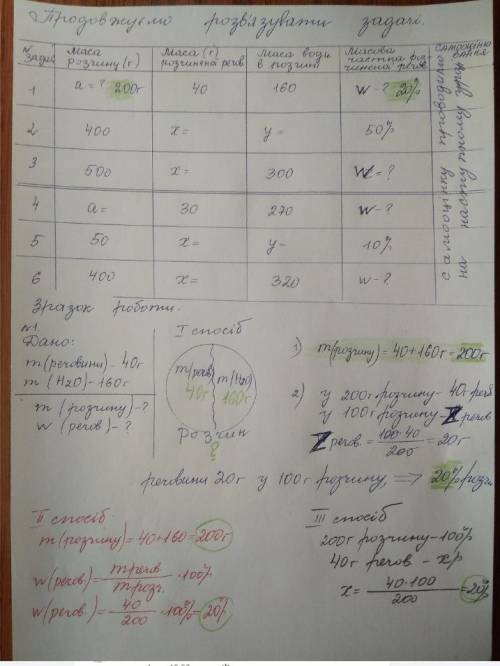 Продовжуємо розв'язувати задачі.
№ задачі Маса розчину (г) Маса (г) розчиненої речов Маса води в розчині Масова частка роз- чиненої речов
1 a = ? 200г 40 160 w - ? 20%
2 400 x = y = 50%
3 500 x = 300 w = ?
4 a = 30 270 w - ?
5 50 x = y = 10%
6 400 x = 320 w - ?
самооцінку проводимо
на наступному уроці
Зразок роботи.
№1
Дано:
m (речовини) - 40г
m (H2O) - 160г
m (розчину) - ?
w (речов) - ?
I спосіб
m(речов) 40г
m(H2O) 160г
Розчин
?
1) m(розчину) = 40+160г = 200г
2) у 200г розчину - 40г речов
у 100г розчину - Z речов.
Z речов. = 100·40 / 200 = 20г
речовини 20г у 100г розчину, => 20% розчин
II спосіб
m (розчину) = 40+160 = 200г
w (речов) = m речов / m розч. · 100%
w (речов.) = 40 / 200 · 100% = 20%
III спосіб
200г розчину - 100%
40г речов - x%
x = 40·100 / 200 = 20%